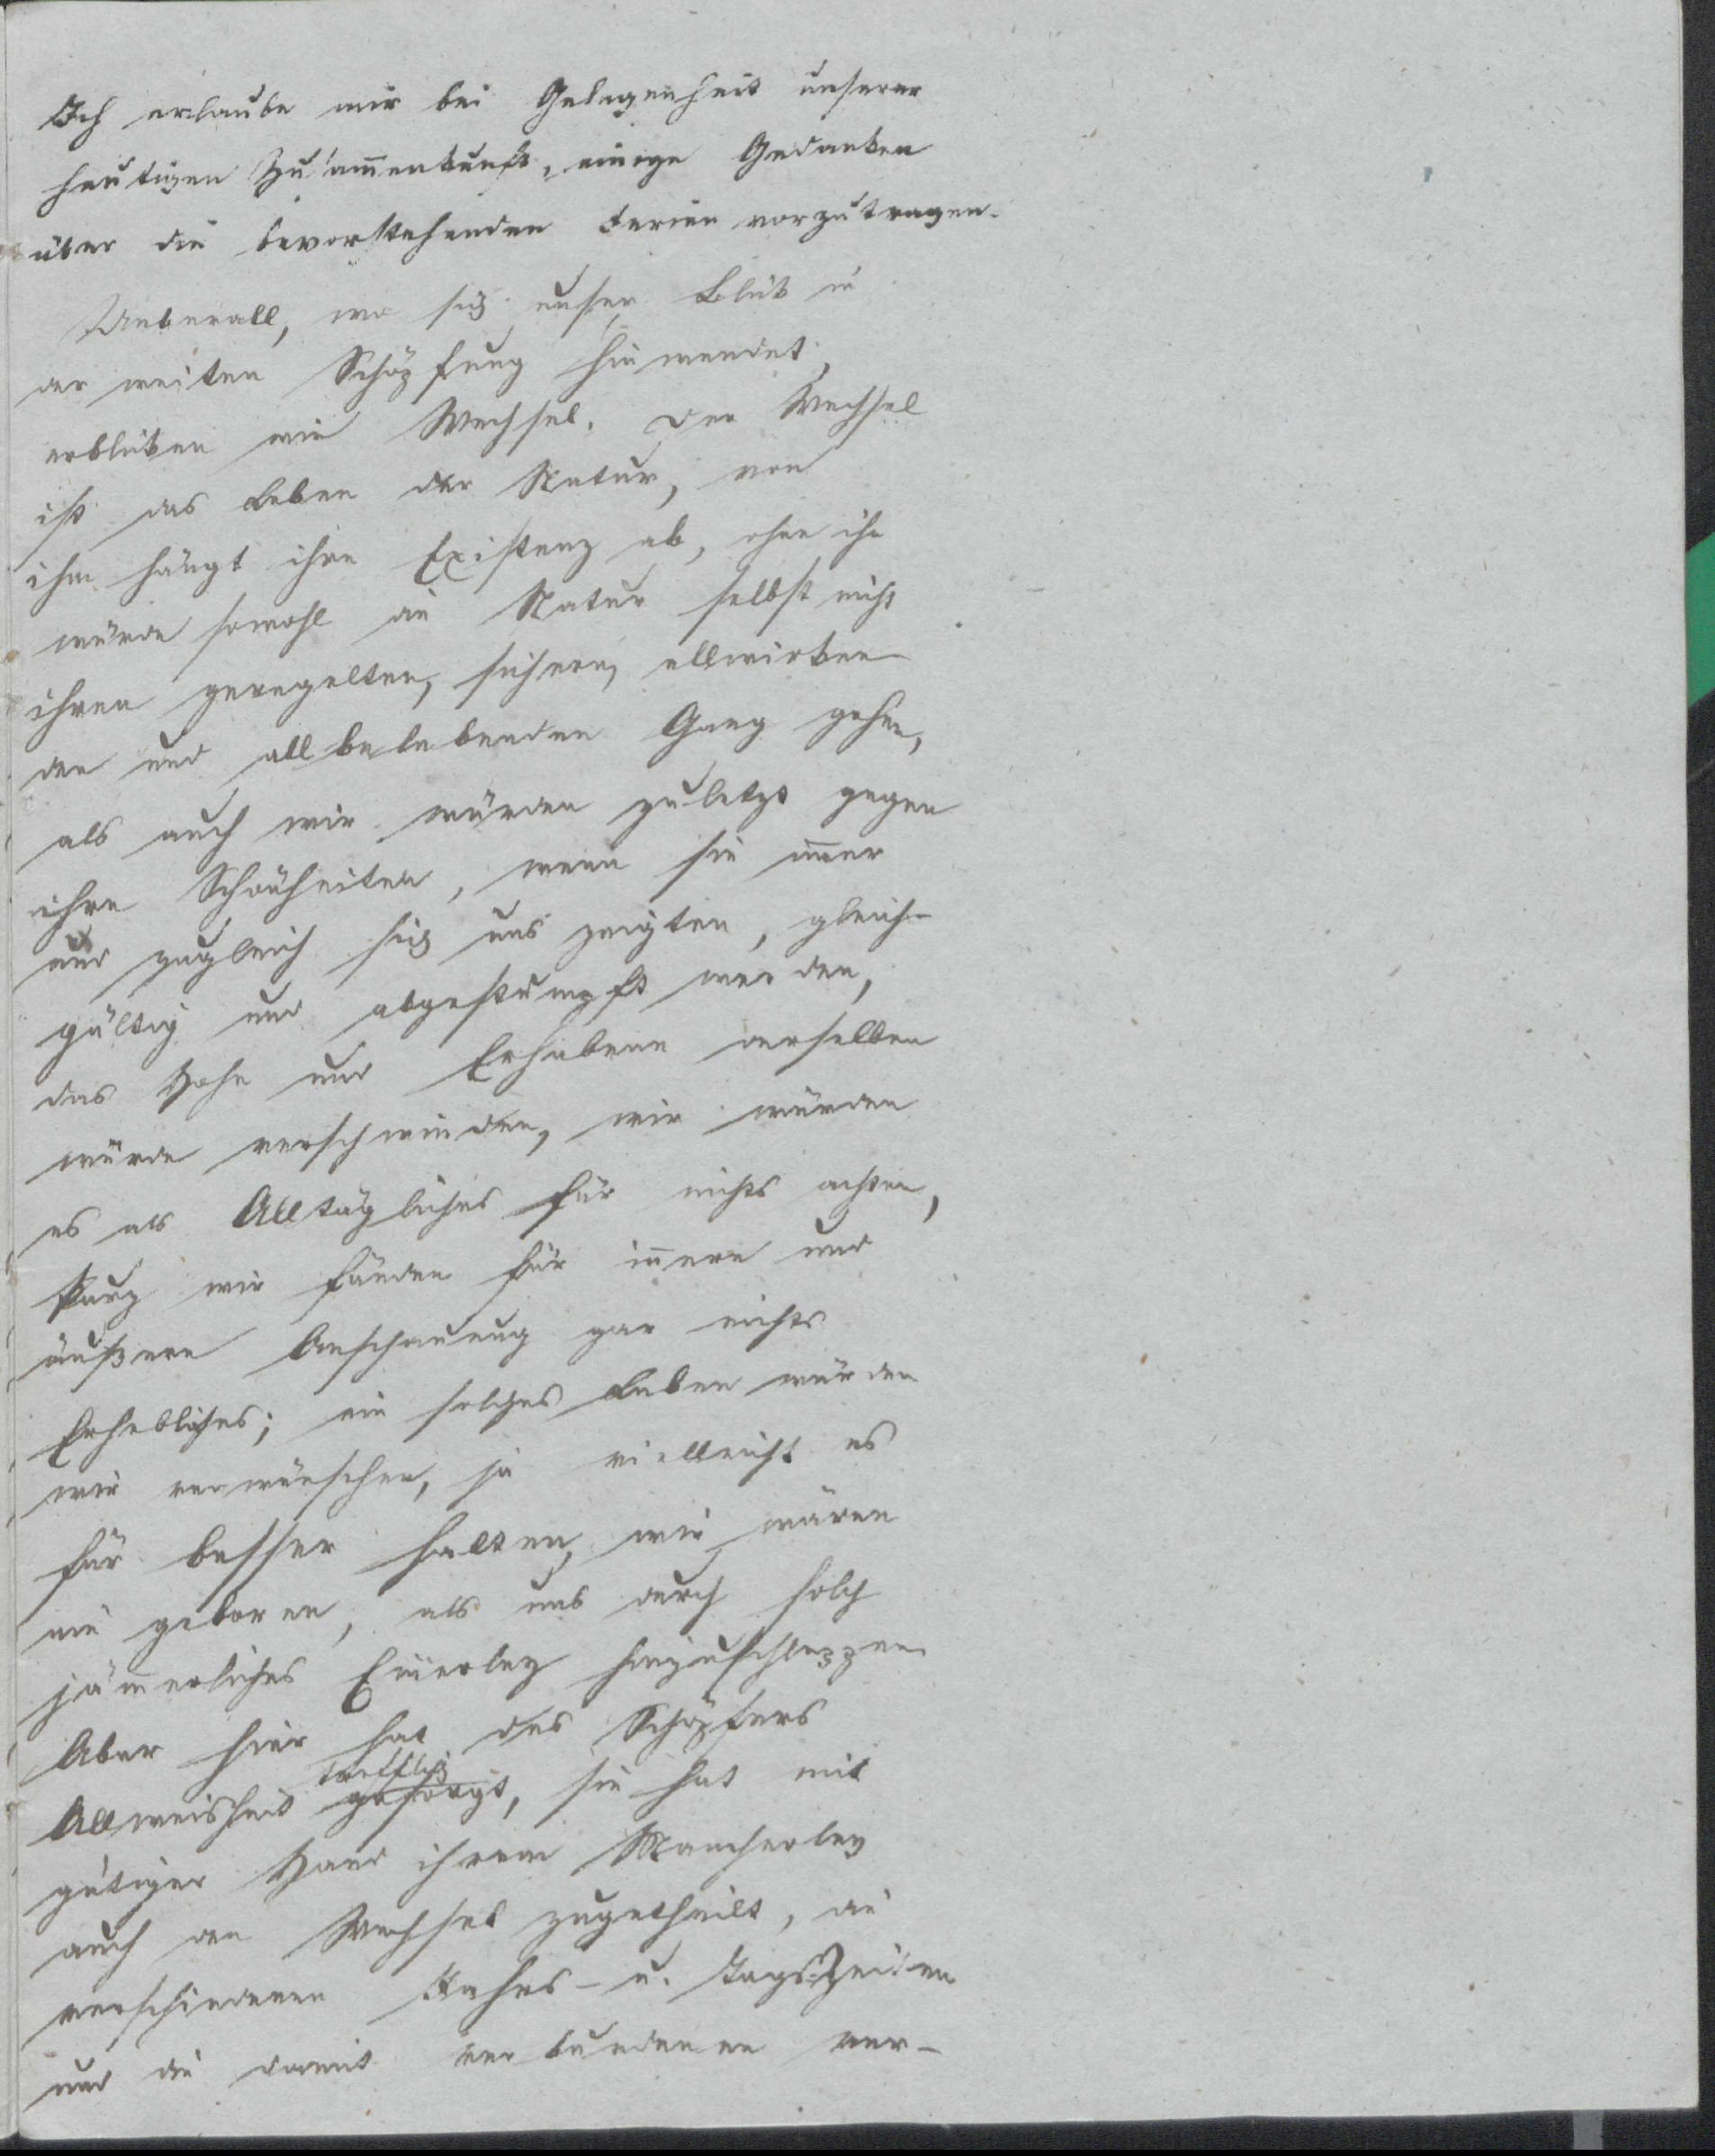 Ich erlaube mir bei Gelegenheit unserer
heutigen Zusam̄enkunft, einige Gedanken
über die bevorstehenden Ferien vorzutragen.
Ueberall, wo sich unser Blick in
der weiten Schöpfung hinwendet,
erblicken wir Wechsel. Der Wechsel
ist das Leben der Natur, von
ihm hängt ihre Existenz ab, ohne ihn
würde sowohl die Natur selbst nicht
ihren geregelten, sichern, allwirken-
den und allbelebenden Gang gehen,
als auch wir würden zuletzt gegen
ihre Schönheiten, wenn sie im̄er
nur zugleich sich uns zeigten, gleich-
gültig und abgestumpft werden,
das Hohe und Erhabene derselben
würde verschwinden, wir würden
es als Alltägliches für nichts achten,
kurz wir fänden für in̄ere und
äußere Anschauung gar nichts
Erhebliches; ein solches Leben würden
wir verwünschen, ja vielleicht es
für besser halten, wir wären
nie geboren, als uns durch solch
jäm̄erliches Einerley hinzuschleppen.
Aber hier hat des Schöpfers
trefflich
Allweisheit gesorgt, sie hat mit
gütiger Hand ihrem Mancherley
auch den Wechsel zugetheilt, die
verschiedenen Jahrs- u. Tags-Zeiten
und die damit verbundenen ver-